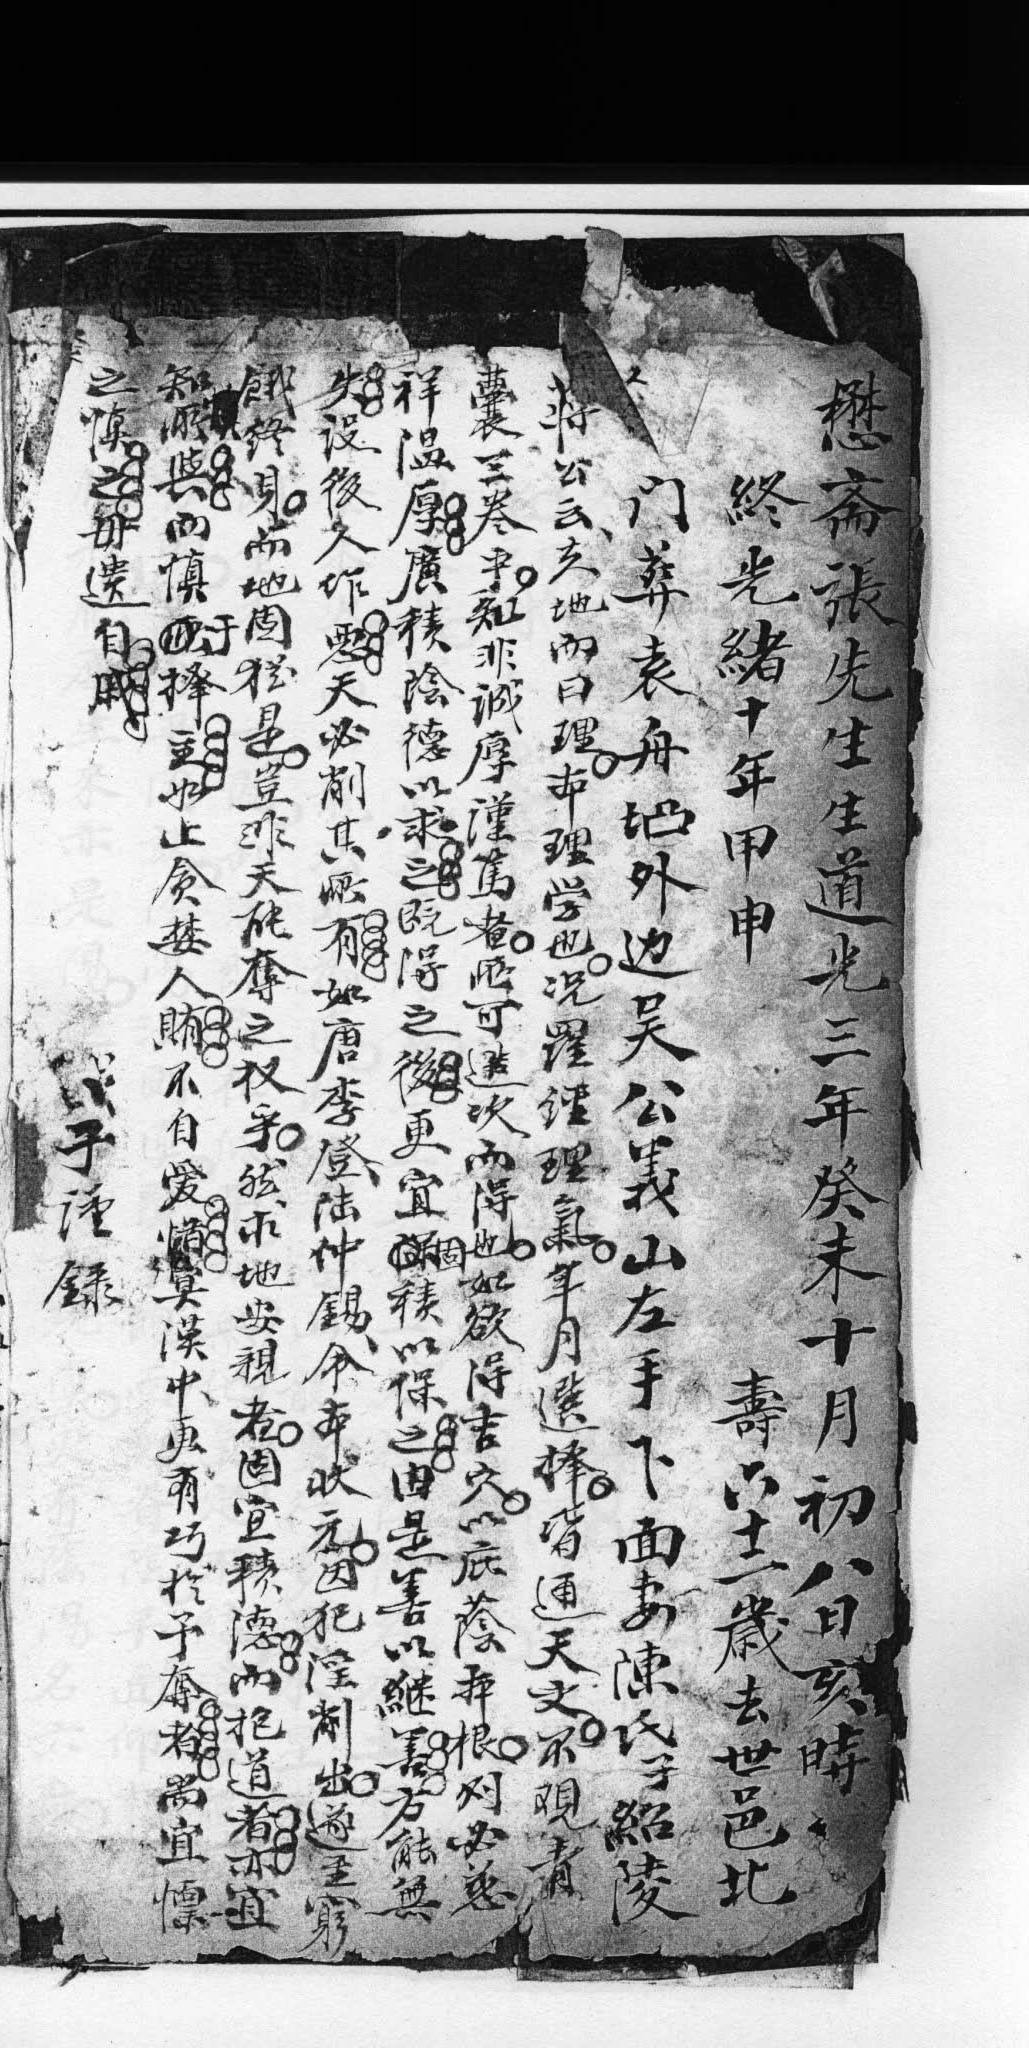 懋斋張先生生道光三年癸未十月初八日亥時
終光緒十年甲申 壽六十二歲去世邑北
门葬袁舟垇外边吴公義山左手下面妻陳氏子紹陵
蔣公云夫地而曰理本理学也况羅經理氣年月選擇皆通天文不观青
囊三卷中知非诚厚谨篤者照可造次而得也如欲得吉穴以庇蔭并根列必慈
祥温厚廣積陰德以求之既得之後更宜固積以保之由是善以継善方能無
失設後人作惡天必削其照有如唐李登陆仲錫命本状元因犯淫削出遂至窮
餓終身而地固犹是豈非天能奪之权乎然求地安親者固宜積德而抱道者亦宜
知所與而慎于择主如止貪婪人賄不自爱惜冥漠中更有巧於予奪者尚宜慄
之慎之毋遗自戚
子谨録